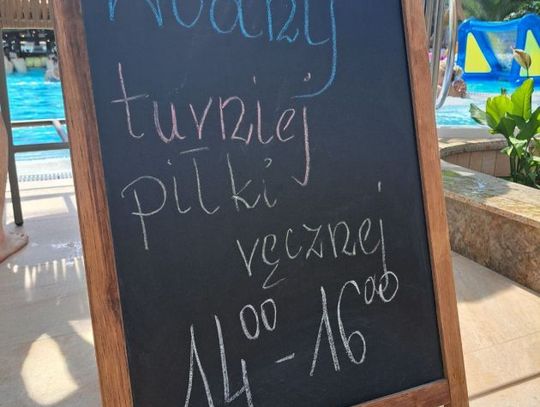 Wodny
turniej
piłki
ręcznej
14⁰⁰ - 16⁰⁰